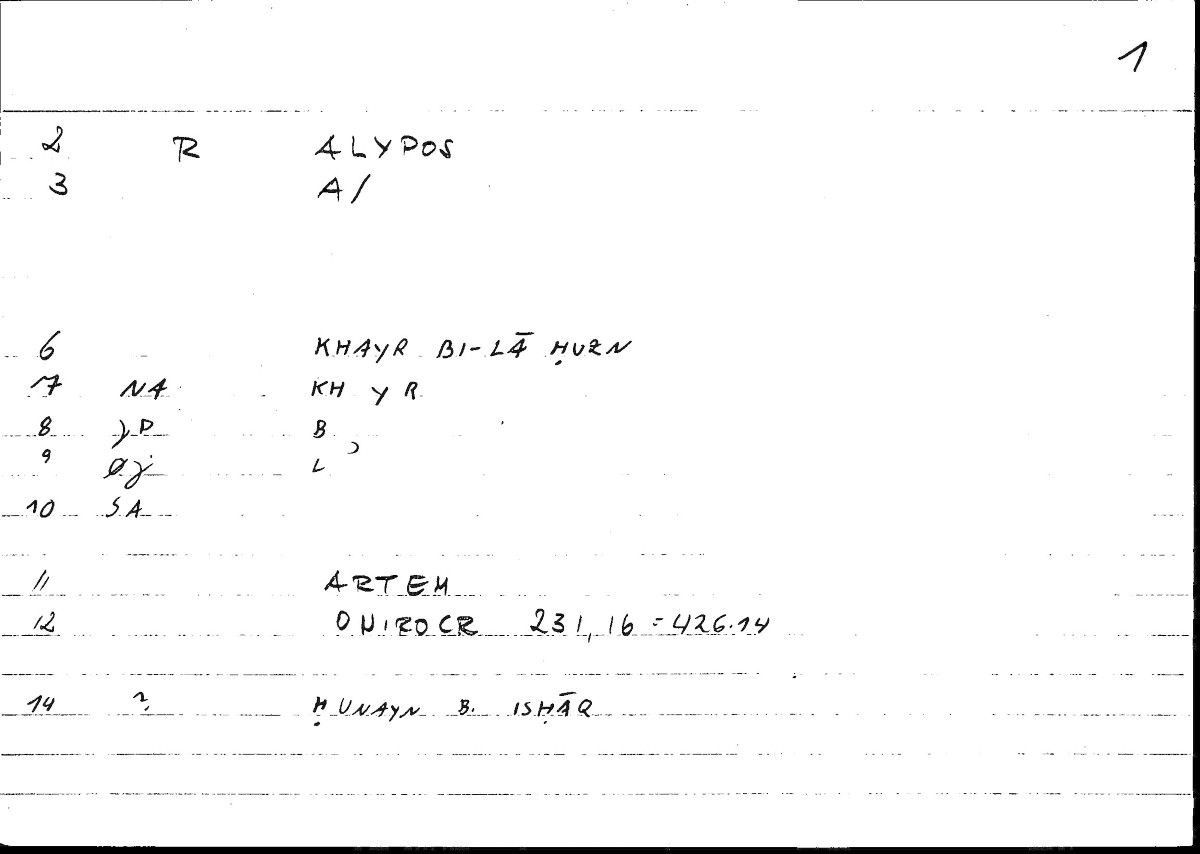 1
2 R ALYPOS
3 A/
6 KHAYR BI-LĀ ḤUZN
7 NA KH Y R
8 B
9 L ʾ
10 SA
11 ARTEM
12 ONIROCR 231,16 = 426.14
14 ? ḤUNAYN B. ISḤĀQ